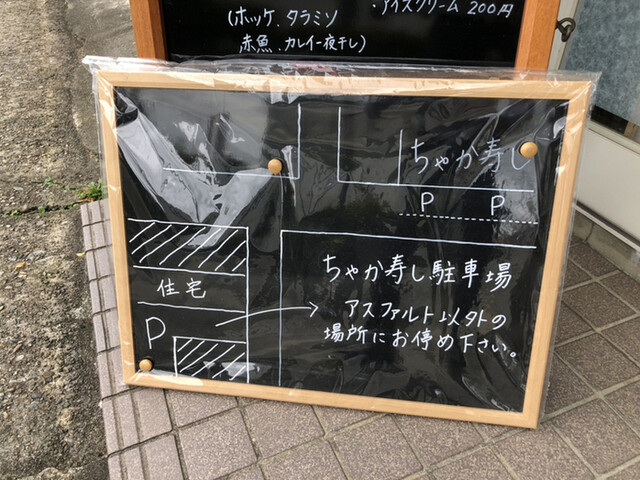 (ホッケ、タラミソ
・アイスクリーム200円
赤魚、カレイ一夜干し)
ちゃか寿し
P P
ちゃか寿し駐車場
住宅
アスファルト以外の
P
場所にお停め下さい。